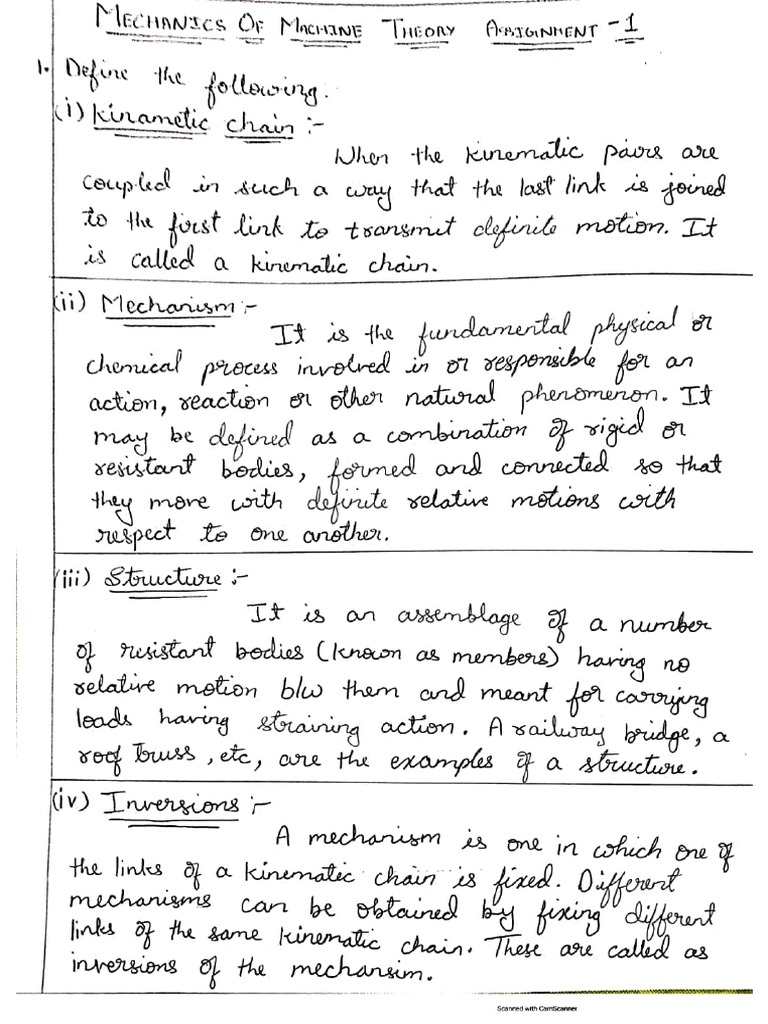 MECHANICS OF MACHINE THEORY ASSIGNMENT -1
1. Define the following.
(i) Kinametic chain :-
When the kinematic pairs are
coupled in such a way that the last link is joined
to the first link to transmit definite motion. It
is called a kinematic chain.
(ii) Mechanism :-
It is the fundamental physical or
chemical process involved in or responsible for an
action, reaction or other natural phenomenon. It
may be defined as a combination of rigid or
resistant bodies, formed and connected so that
they more with definite relative motions with
respect to one another.
(iii) Structure :-
It is an assemblage of a number
of resistant bodies (known as members) having no
relative motion b/w them and meant for carrying
loads having straining action. A railway bridge, a
roof truss, etc, are the examples of a structure.
(iv) Inversions :-
A mechanism is one in which one of
the links of a kinematic chain is fixed. Different
mechanisms can be obtained by fixing different
links of the same kinematic chain. These are called as
inversions of the mechansim.
Scanned with CamScanner